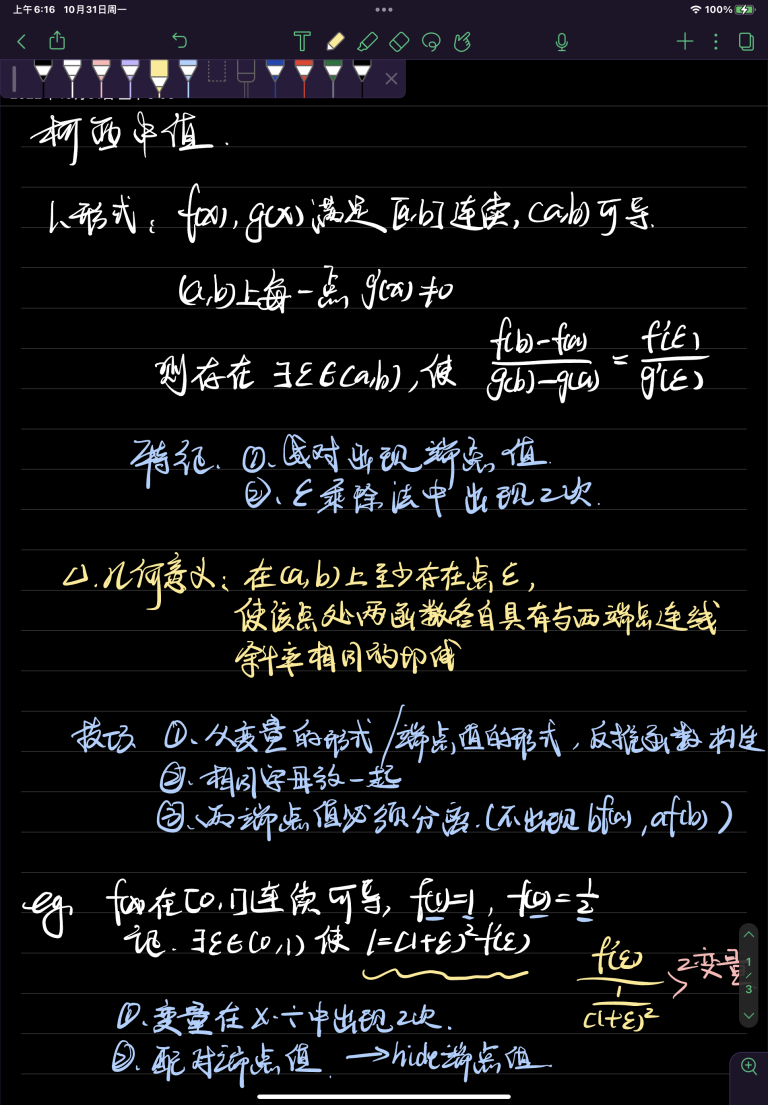 上午6:16 10月31日周一
100%
柯西中值.
1. 形式: f(x), g(x)满足 [a,b]连续, (a,b)可导.
(a,b)上每一点 g'(x)≠0
则存在 ∃ξ∈(a,b), 使 \frac{f(b)-f(a)}{g(b)-g(a)} = \frac{f'(ξ)}{g'(ξ)}
特征. ①. 成对出现端点值.
②. ξ乘除法中出现2次.
2. 几何意义: 在(a,b)上至少存在点ξ,
使该点处两函数各自具有与两端点连线
斜率相同的切线
技巧 ①. 从变量的形式/端点值的形式, 反推函数构造
②. 相同字母放一起
③. 两端点值必须分离. (不出现 bf(a), af(b))
eg. f(x)在[0,1]连续可导, f(1)=1, f(0)=\frac{1}{2}
记. ∃ξ∈(0,1) 使 1=(1+ξ)²f'(ξ)
\frac{f'(ξ)}{\frac{1}{(1+ξ)²}} > 2变量
1/3
①. 变量在 ×.÷中出现2次.
②. 配对端点值. →hide端点值.